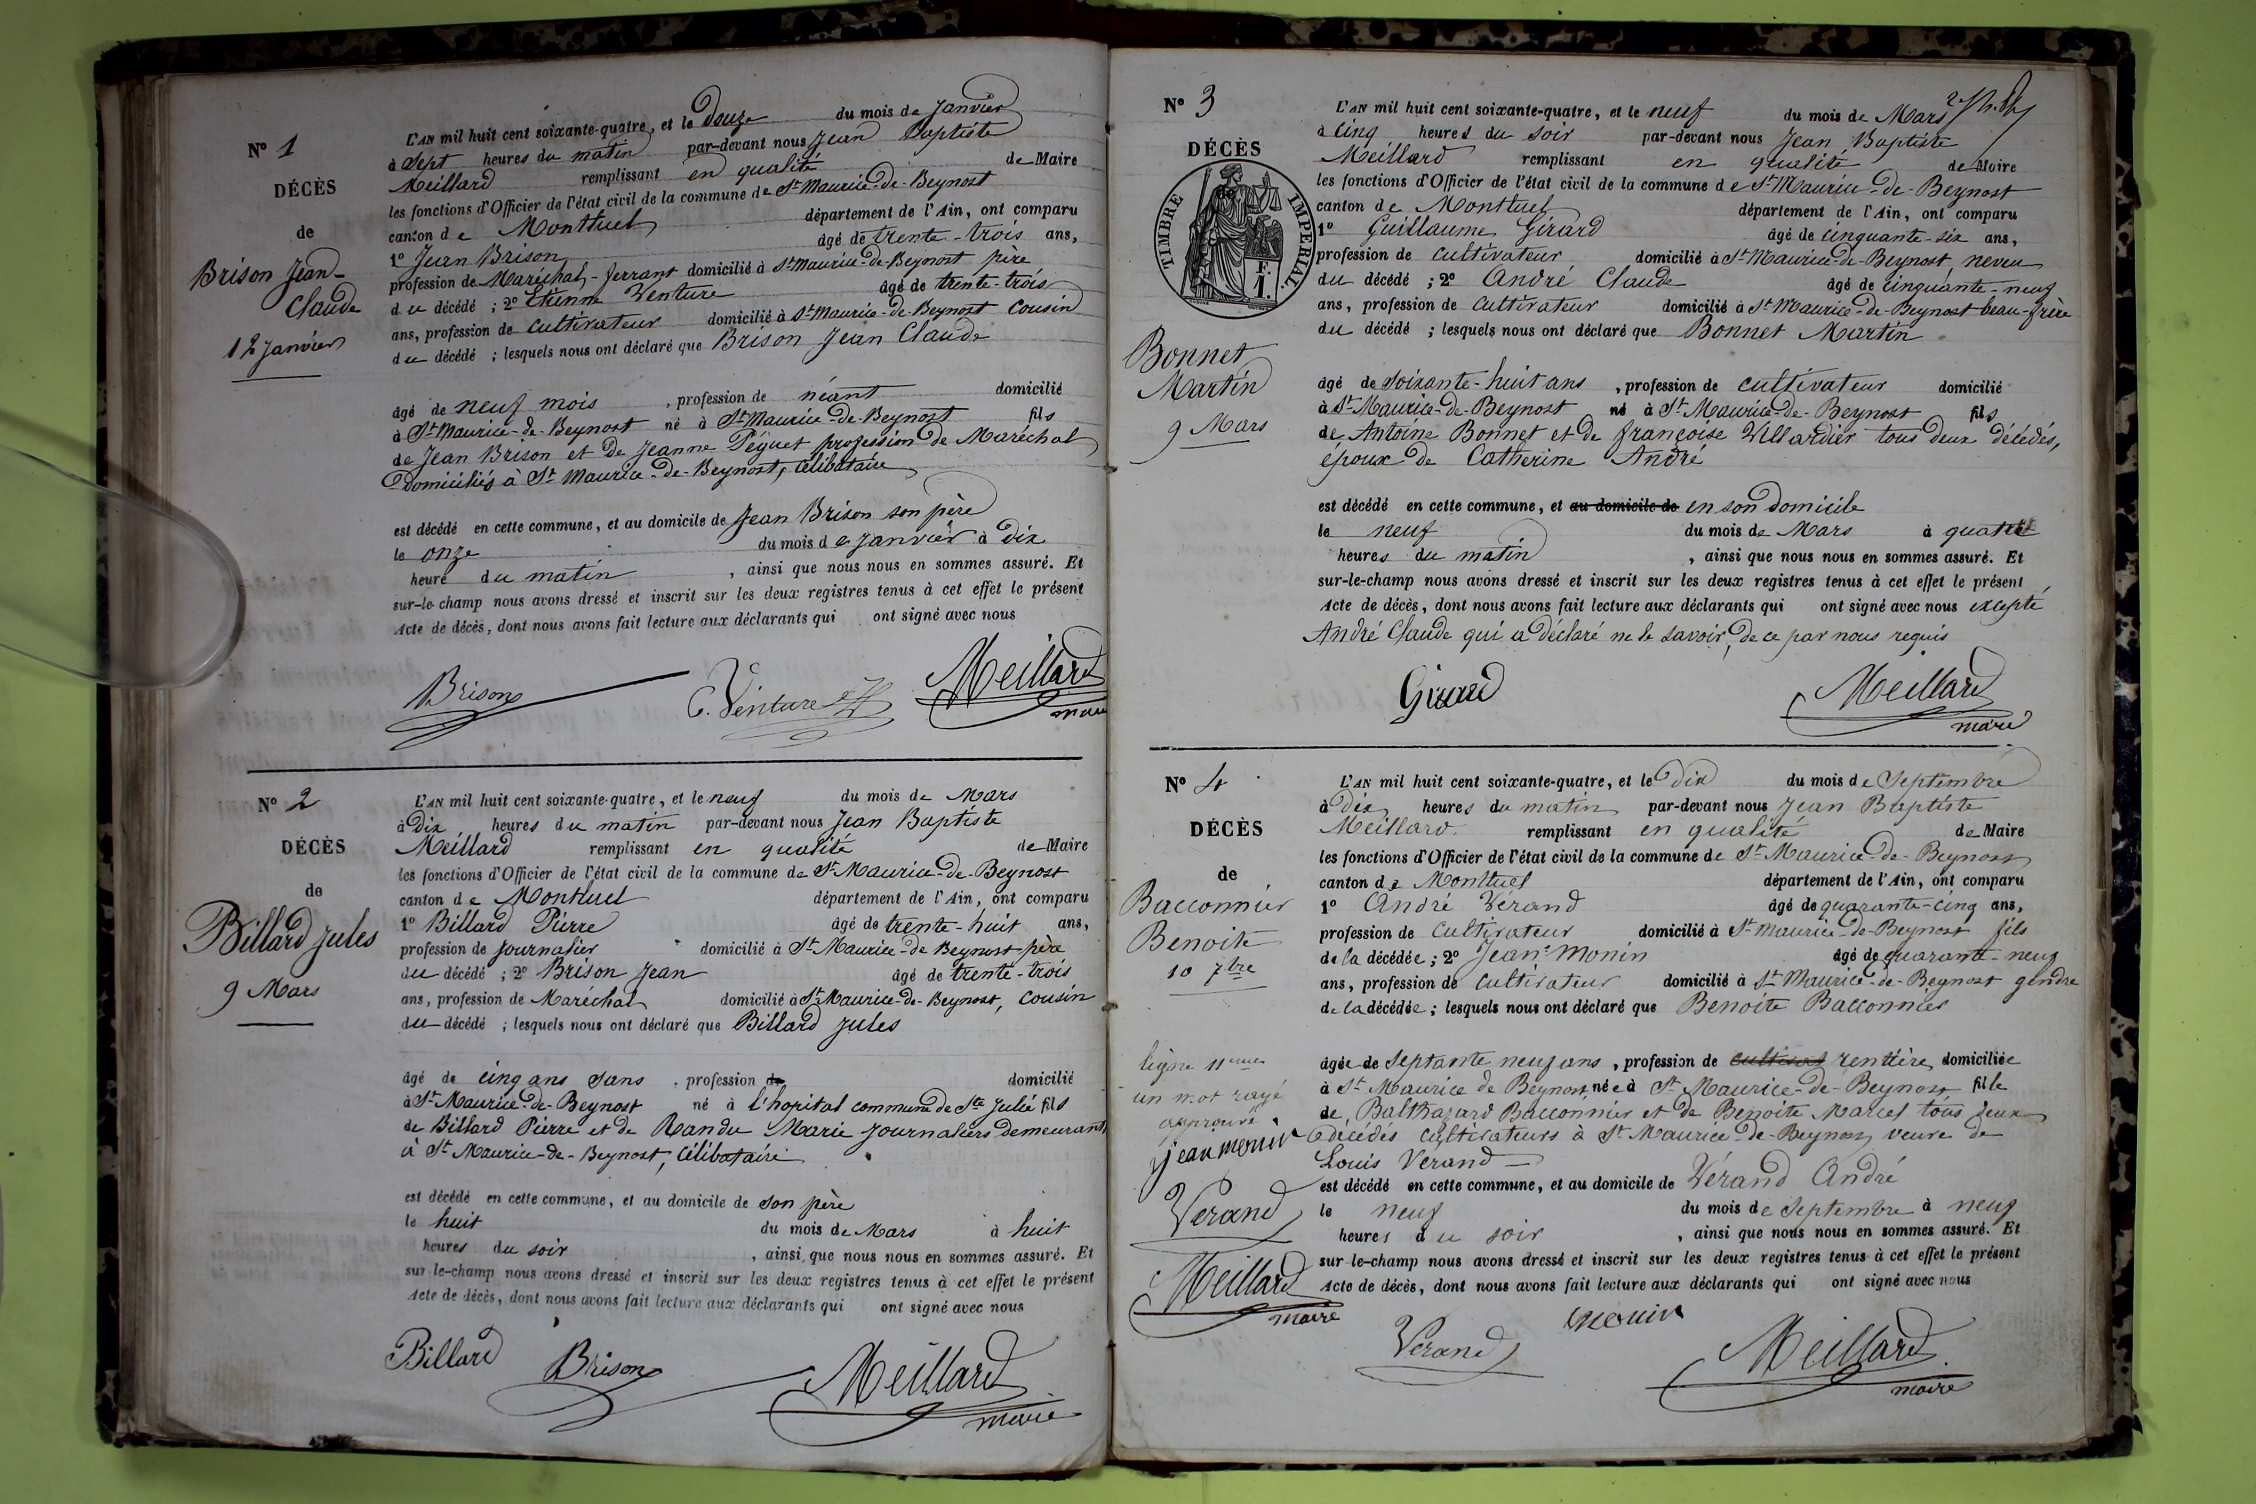 N° 1
DÉCÈS
de
Brison Jean
Claude
12 Janvier
L'AN mil huit cent soixante-quatre, et le Douze du mois de Janvier
à Sept heures du matin par-devant nous Jean Baptiste
Meillard remplissant en qualité de Maire
les fonctions d'Officier de l'état civil de la commune de St Maurice-de-Beynost
canton de Montluel département de l'Ain, ont comparu
1° Jean Brison âgé de trente-trois ans,
profession de Maréchal-ferrant domicilié à St Maurice-de-Beynost père
du décédé ; 2° Etienne Venture âgé de trente-trois
ans, profession de cultivateur domicilié à St Maurice-de-Beynost cousin
du décédé ; lesquels nous ont déclaré que Brison Jean Claude
âgé de neuf mois , profession de néant domicilié
à St Maurice-de-Beynost né à St Maurice-de-Beynost fils
de Jean Brison et de Jeanne Péguet profession de Maréchal
domiciliés à St Maurice-de-Beynost, célibataire
est décédé en cette commune, et au domicile de Jean Brison son père
le onze du mois de Janvier à dix
heure du matin , ainsi que nous nous en sommes assuré. Et
sur-le-champ nous avons dressé et inscrit sur les deux registres tenus à cet effet le présent
Acte de décès, dont nous avons fait lecture aux déclarants qui ont signé avec nous
Brison E. Venture Meillard
maire
N° 2
DÉCÈS
de
Billard Jules
9 Mars
L'AN mil huit cent soixante-quatre, et le neuf du mois de Mars
à Dix heures du matin par-devant nous Jean Baptiste
Meillard remplissant en qualité de Maire
les fonctions d'Officier de l'état civil de la commune de St Maurice-de-Beynost
canton de Montluel département de l'Ain, ont comparu
1° Billard Pierre âgé de trente-huit ans,
profession de journalier domicilié à St Maurice-de-Beynost père
du décédé ; 2° Brison Jean âgé de trente-trois
ans, profession de Maréchal domicilié à St Maurice-de-Beynost, cousin
du décédé ; lesquels nous ont déclaré que Billard Jules
âgé de cinq ans sans , profession de domicilié
à St Maurice-de-Beynost né à l'hopital commune de Ste Julie fils
de Billard Pierre et de Randu Marie journaliers demeurant
à St Maurice-de-Beynost, célibataire
est décédé en cette commune, et au domicile de son père
le huit du mois de Mars à huit
heures du soir , ainsi que nous nous en sommes assuré. Et
sur-le-champ nous avons dressé et inscrit sur les deux registres tenus à cet effet le présent
Acte de décès, dont nous avons fait lecture aux déclarants qui ont signé avec nous
Billard Brison Meillard
maire
N° 3
DÉCÈS
TIMBRE IMPÉRIAL
F.
1.
Bonnet
Martin
9 Mars
L'AN mil huit cent soixante-quatre, et le neuf du mois de Mars
à cinq heures du soir par-devant nous Jean Baptiste
Meillard remplissant en qualité de Maire
les fonctions d'Officier de l'état civil de la commune de St Maurice-de-Beynost
canton de Montluel département de l'Ain, ont comparu
1° Guillaume Girard âgé de cinquante-six ans,
profession de cultivateur domicilié à St Maurice-de-Beynost, neveu
du décédé ; 2° André Claude âgé de cinquante-neuf
ans, profession de cultivateur domicilié à St Maurice-de-Beynost beau-frère
du décédé ; lesquels nous ont déclaré que Bonnet Martin
âgé de Soixante-huit ans , profession de cultivateur domicilié
à St Maurice-de-Beynost né à St Maurice-de-Beynost fils
de Antoine Bonnet et de françoise Villardier tous deux décédés,
époux de Catherine André
est décédé en cette commune, et au domicile de en son domicile
le neuf du mois de Mars à quatre
heures du matin , ainsi que nous nous en sommes assuré. Et
sur-le-champ nous avons dressé et inscrit sur les deux registres tenus à cet effet le présent
Acte de décès, dont nous avons fait lecture aux déclarants qui ont signé avec nous excepté
André Claude qui a déclaré ne le savoir, de ce par nous requis
Girard Meillard
maire
N° 4
DÉCÈS
de
Bacconnier
Benoite
10 7bre
ligne 11eme
un mot rayé
approuvé
jean monin
Verand
Meillard
maire
L'AN mil huit cent soixante-quatre, et le Dix du mois de Septembre
à Dix heures du matin par-devant nous Jean Baptiste
Meillard remplissant en qualité de Maire
les fonctions d'Officier de l'état civil de la commune de St Maurice-de-Beynost
canton de Montluel département de l'Ain, ont comparu
1° André Vérand âgé de quarante-cinq ans,
profession de Cultivateur domicilié à St Maurice-de-Beynost fils
de la décédée ; 2° Jean Monin âgé de quarante-neuf
ans, profession de cultivateur domicilié à St Maurice-de-Beynost gendre
de la décédée ; lesquels nous ont déclaré que Benoite Bacconnier
âgée de Septante neuf ans , profession de rentière domiciliée
à St Maurice de Beynost, née à St Maurice-de-Beynost fille
de Balthazard Bacconnier et de Benoite Marcel tous deux
décédés cultivateurs à St Maurice-de-Beynost veuve de
Louis Verand
est décédé en cette commune, et au domicile de Vérand André
le neuf du mois de Septembre à neuf
heures du soir , ainsi que nous nous en sommes assuré. Et
sur-le-champ nous avons dressé et inscrit sur les deux registres tenus à cet effet le présent
Acte de décès, dont nous avons fait lecture aux déclarants qui ont signé avec nous
Verand monin Meillard
maire